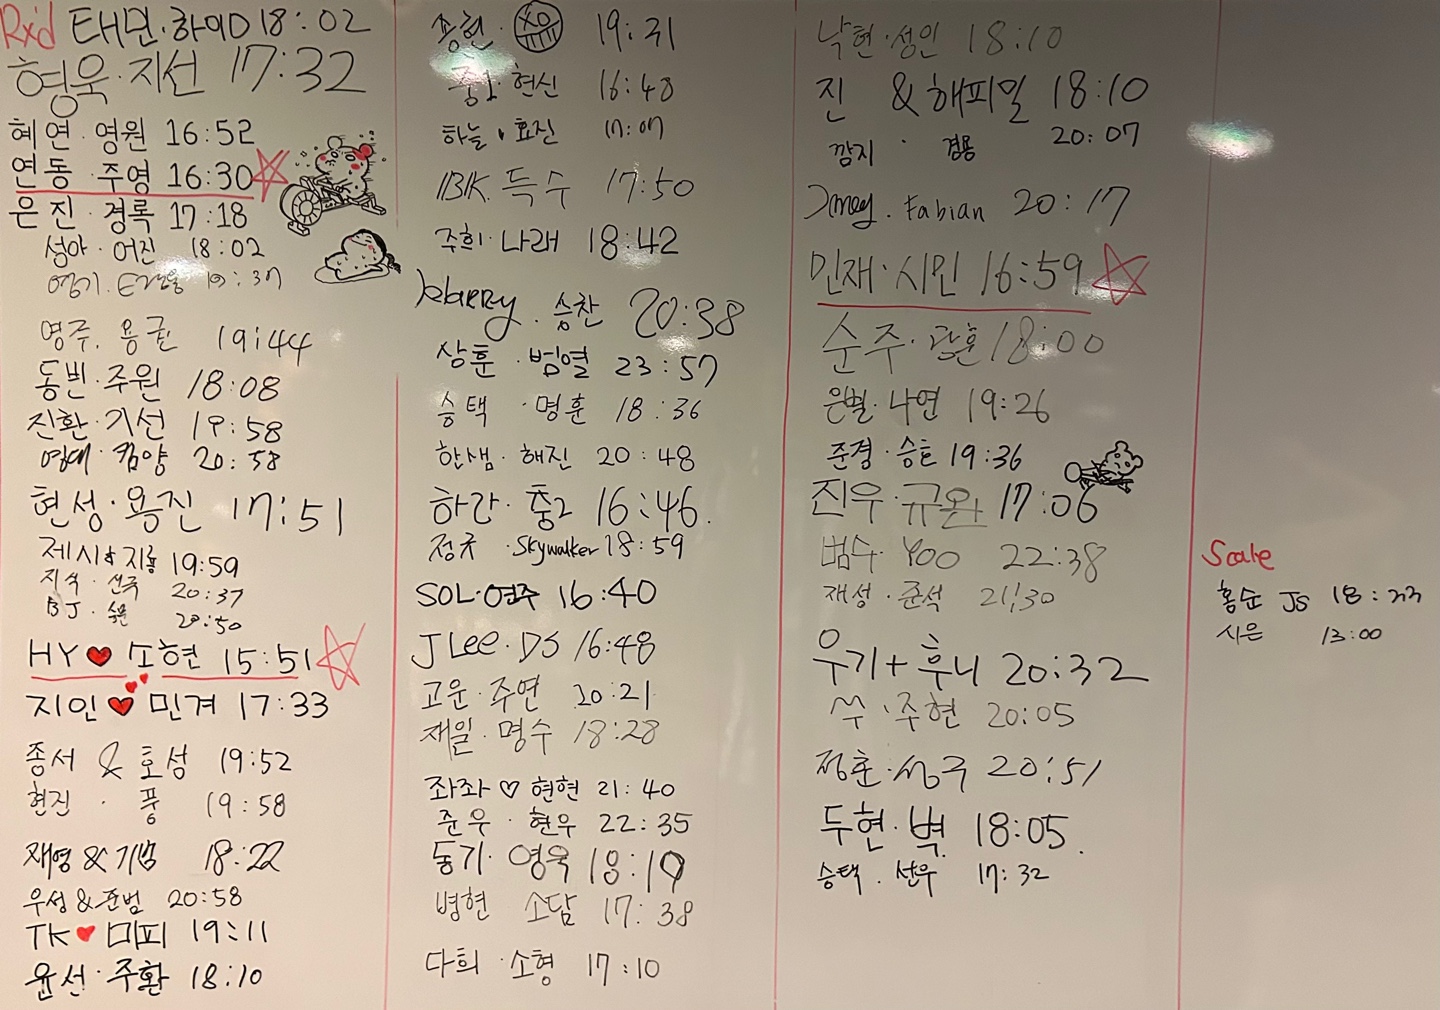 Rx'd 태민·하이D 18:02
형욱·지선 17:32
혜연·영원 16:52
연동·주영 16:30
은진·경록 17:18
성아·어진 18:02
영기. 19:37
영주. 용균 19:44
동빈·주원 18:08
진환·기선 19:58
영대·킴양 20:58
현성·용진 17:51
제시&지홍 19:59
지숙·선국 20:37
BJ· 20:50
HY♥소현 15:51
지인♥민겨 17:33
종서 & 호성 19:52
현진 · 풍 19:58
재영 & 기범 18:22
우성 & 준범 20:58
TK♥미피 19:11
윤선·주환 18:10
종현· 19:31
중1·현신 16:48
하늘·효진 17:07
IBK 득수 17:50
주희·나래 18:42
Harry. 승찬 20:38
상훈·범열 23:57
승택·명훈 18:36
한샘·해진 20:48
하간·중2 16:46.
정규·Skywalker 18:59
SOL·연주 16:40
J Lee·DS 16:48
고운·주연 20:21
재일·명수 18:28
좌좌♡현현 21:40
준우·현우 22:35
동기·영욱 18:19
병현 소담 17:38
다희·소형 17:10
낙현·성인 18:10
진 & 해피밀 18:10
깜지·겸용 20:07
Jmey. Fabian 20:17
민재·시민 16:59
순주·광훈 18:00
은별·나연 19:26
준경·승호 19:36
진우·규완 17:06
범수·YOO 22:38
재성·준석 21:30
우기+후니 20:32
쑤·주현 20:05
정훈·성국 20:51
두현·벽 18:05.
승택. 선우 17:32
Scale
홍순 JS 18:23
시은 13:00